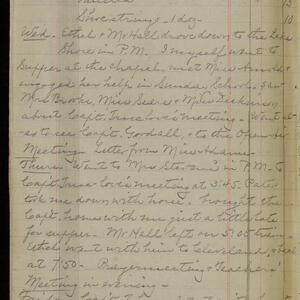 Shoestrings - 1 doz. 10
Wed. Ethel & Mr Hall drove down to the Lake
Shore in P.M. I myself went to
Supper at the chapel. met Miss Arnold
engaged her help in Sunday School. Saw
Mrs Brooks, Miss Sears & Miss Dickinson
about Capt. Truelove's meeting. Went
to see Capt. Goodall, & to the Open Air
Meeting. Letter from Miss Adams.
Thurs. Went to Mrs Stevens' in P.M. to
Capt. Truelove's meeting at 3:45. Pater
took me down with horse. brought the
Capt. home with me just a little late
for supper. Mr Hall left on 5:05 train.
Ethel went with him to Cleveland, & back
at 7:50. Prayermeeting & Teachers'
Meeting in evening.